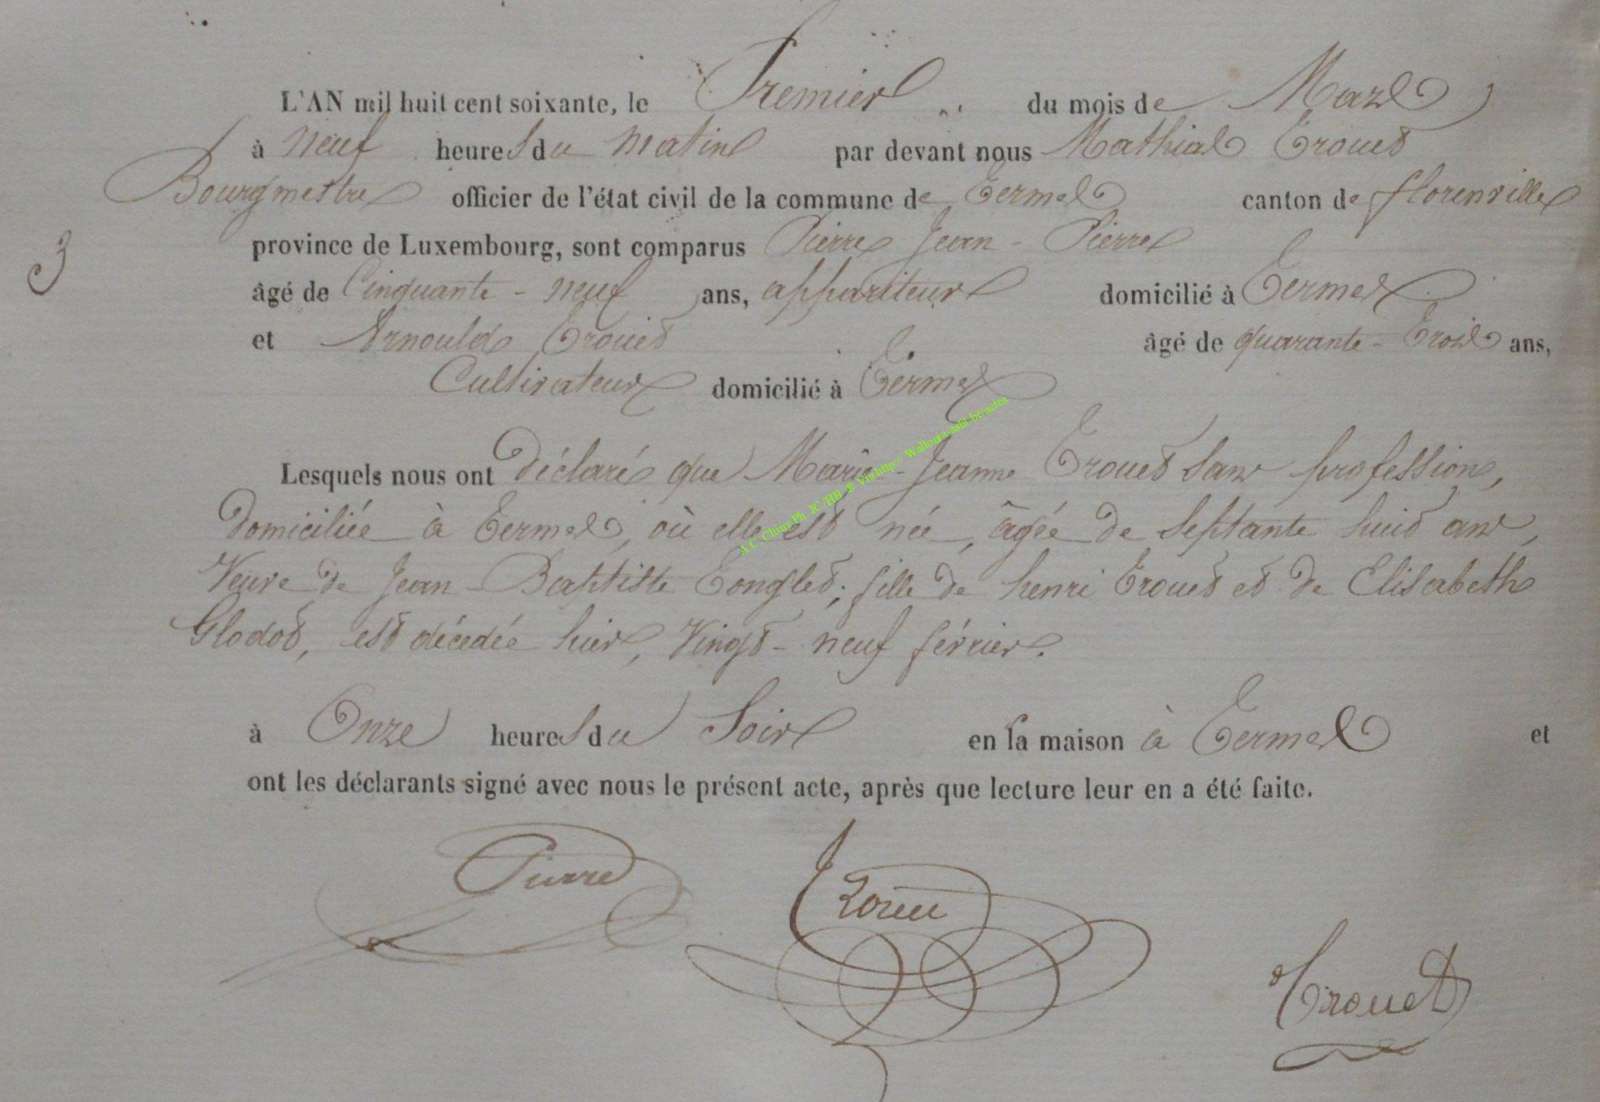 L'AN mil huit cent soixante, le Premier du mois de Mars
à neuf heures du matin par devant nous Mathias Trouet
Bourgmestre officier de l'état civil de la commune de Termes canton de florenville
province de Luxembourg, sont comparus Pierre Jean-Pierre
3
âgé de Cinquante-neuf ans, appariteur domicilié à Termes
et Arnould Trouet âgé de quarante-Trois ans,
Cultivateur domicilié à Termes
Lesquels nous ont déclaré que Marie-Jeanne Trouet sans profession,
domiciliée à Termes, où elle est née, âgée de septante huit ans,
Veuve de Jean-Baptiste Tonglet, fille de henri Trouet et de Elisabeth
Glodot, est décédée hier, Vingt-neuf février.
à Onze heures du Soir en sa maison à Termes et
ont les déclarants signé avec nous le présent acte, après que lecture leur en a été faite.
Pierre
Trouet
Trouet